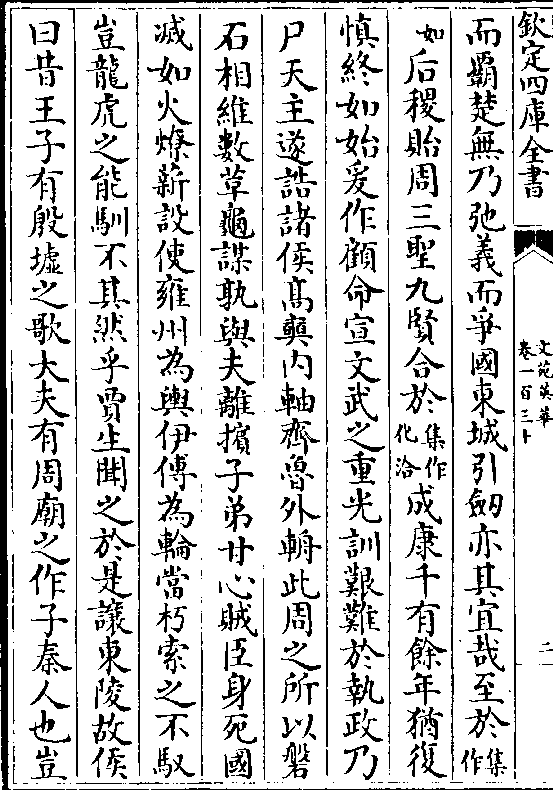 欽定四庫全書
文苑英華
卷一百三十
二
而霸楚無乃弛義而爭國東城引劒亦其宜哉至於集作
如后稷貽周三聖九賢合於集作化洽成康千有餘年猶復
慎終如始爰作顧命宣文武之重光訓艱難於執政乃
尸天主遂誥諸侯髙輿内軸齊魯外輈此周之所以磐
石相維數草龜謀孰與夫離擯子弟甘心賊臣身死國
滅如火燎薪設使雍州為輿伊傅為輪當朽索之不馭
豈龍虎之能馴不其然乎賈生聞之於是讓東陵故侯
曰昔王子有殷墟之歌大夫有周廟之作子秦人也豈